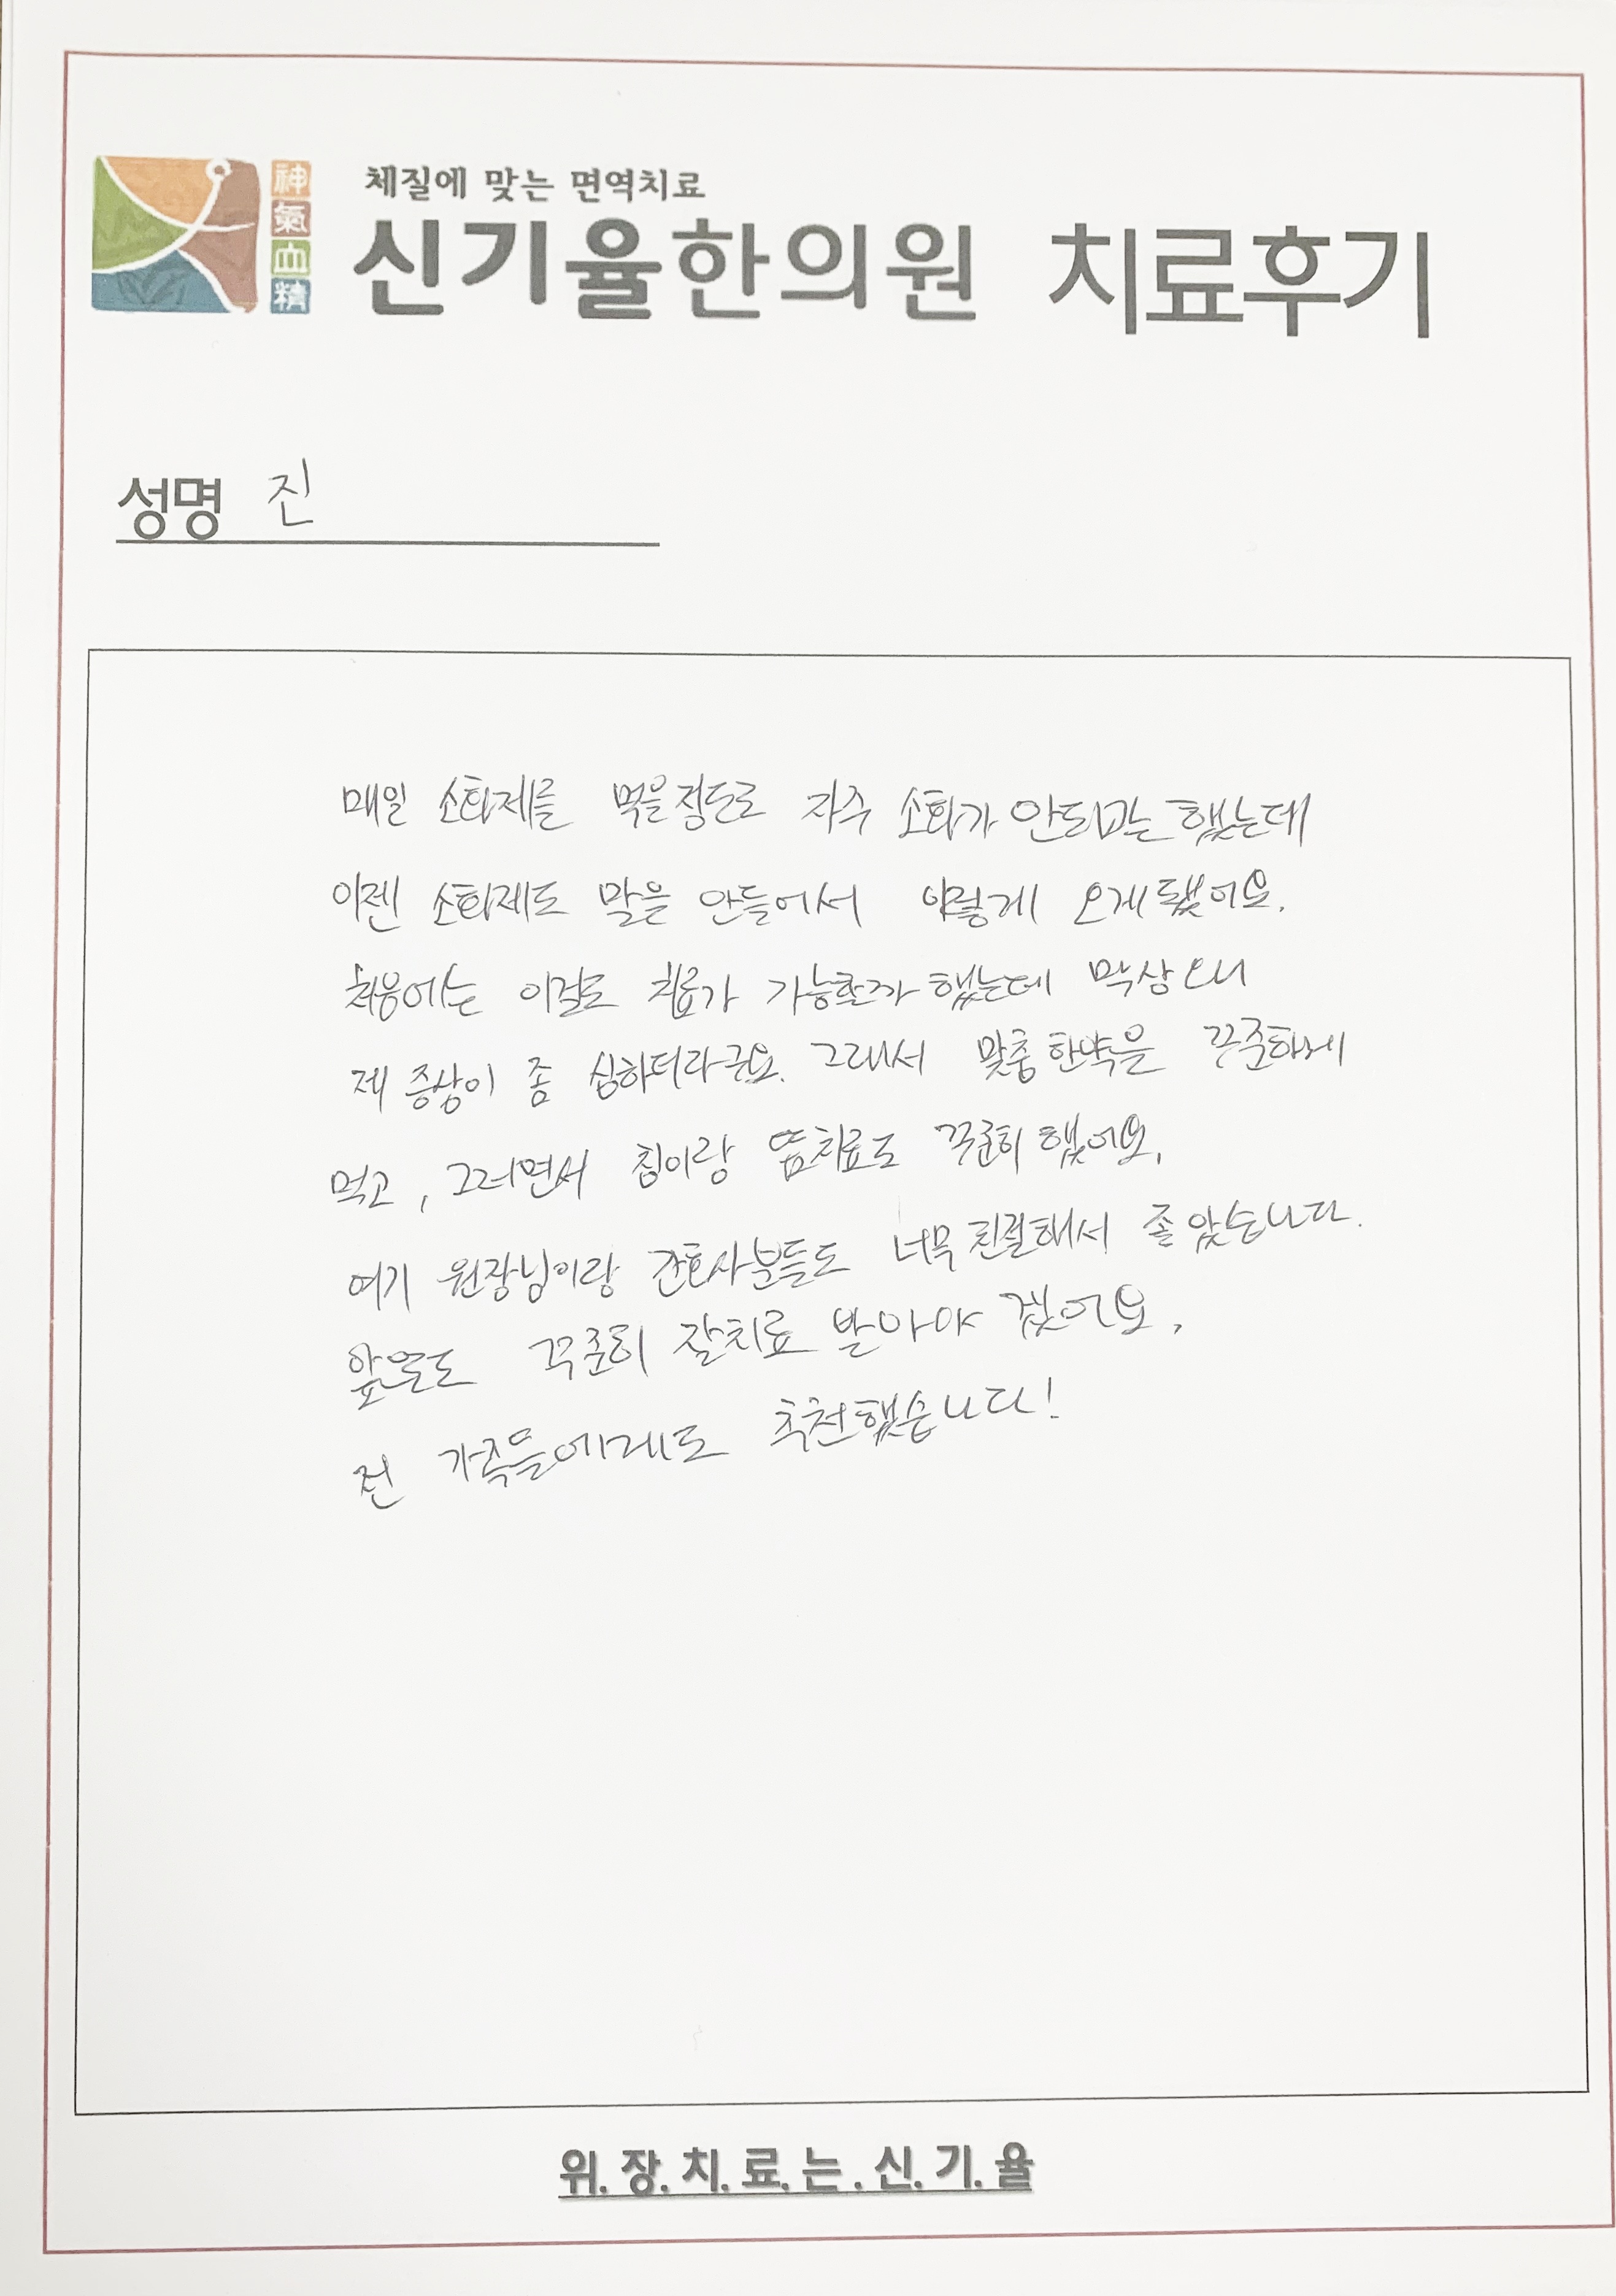 神
氣
血
精
체질에 맞는 면역치료
신기율한의원 치료후기
성명 진
매일 소화제를 먹을정도로 자주 소화가 안되곤 했는데
이젠 소화제도 말을 안들어서 이렇게 오게됐어요.
처음에는 이걸로 치료가 가능한가 했는데 막상 오니
제 증상이 좀 심하더라구요. 그래서 맞춤한약을 꾸준하게
먹고, 그러면서 침이랑 뜸치료도 꾸준히 했어요.
여기 원장님이랑 간호사분들도 너무 친절해서 좋았습니다.
앞으로도 꾸준히 잘치료 받아야 겠어요.
전 가족들에게도 추천했습니다!
위.장.치.료.는.신.기.율